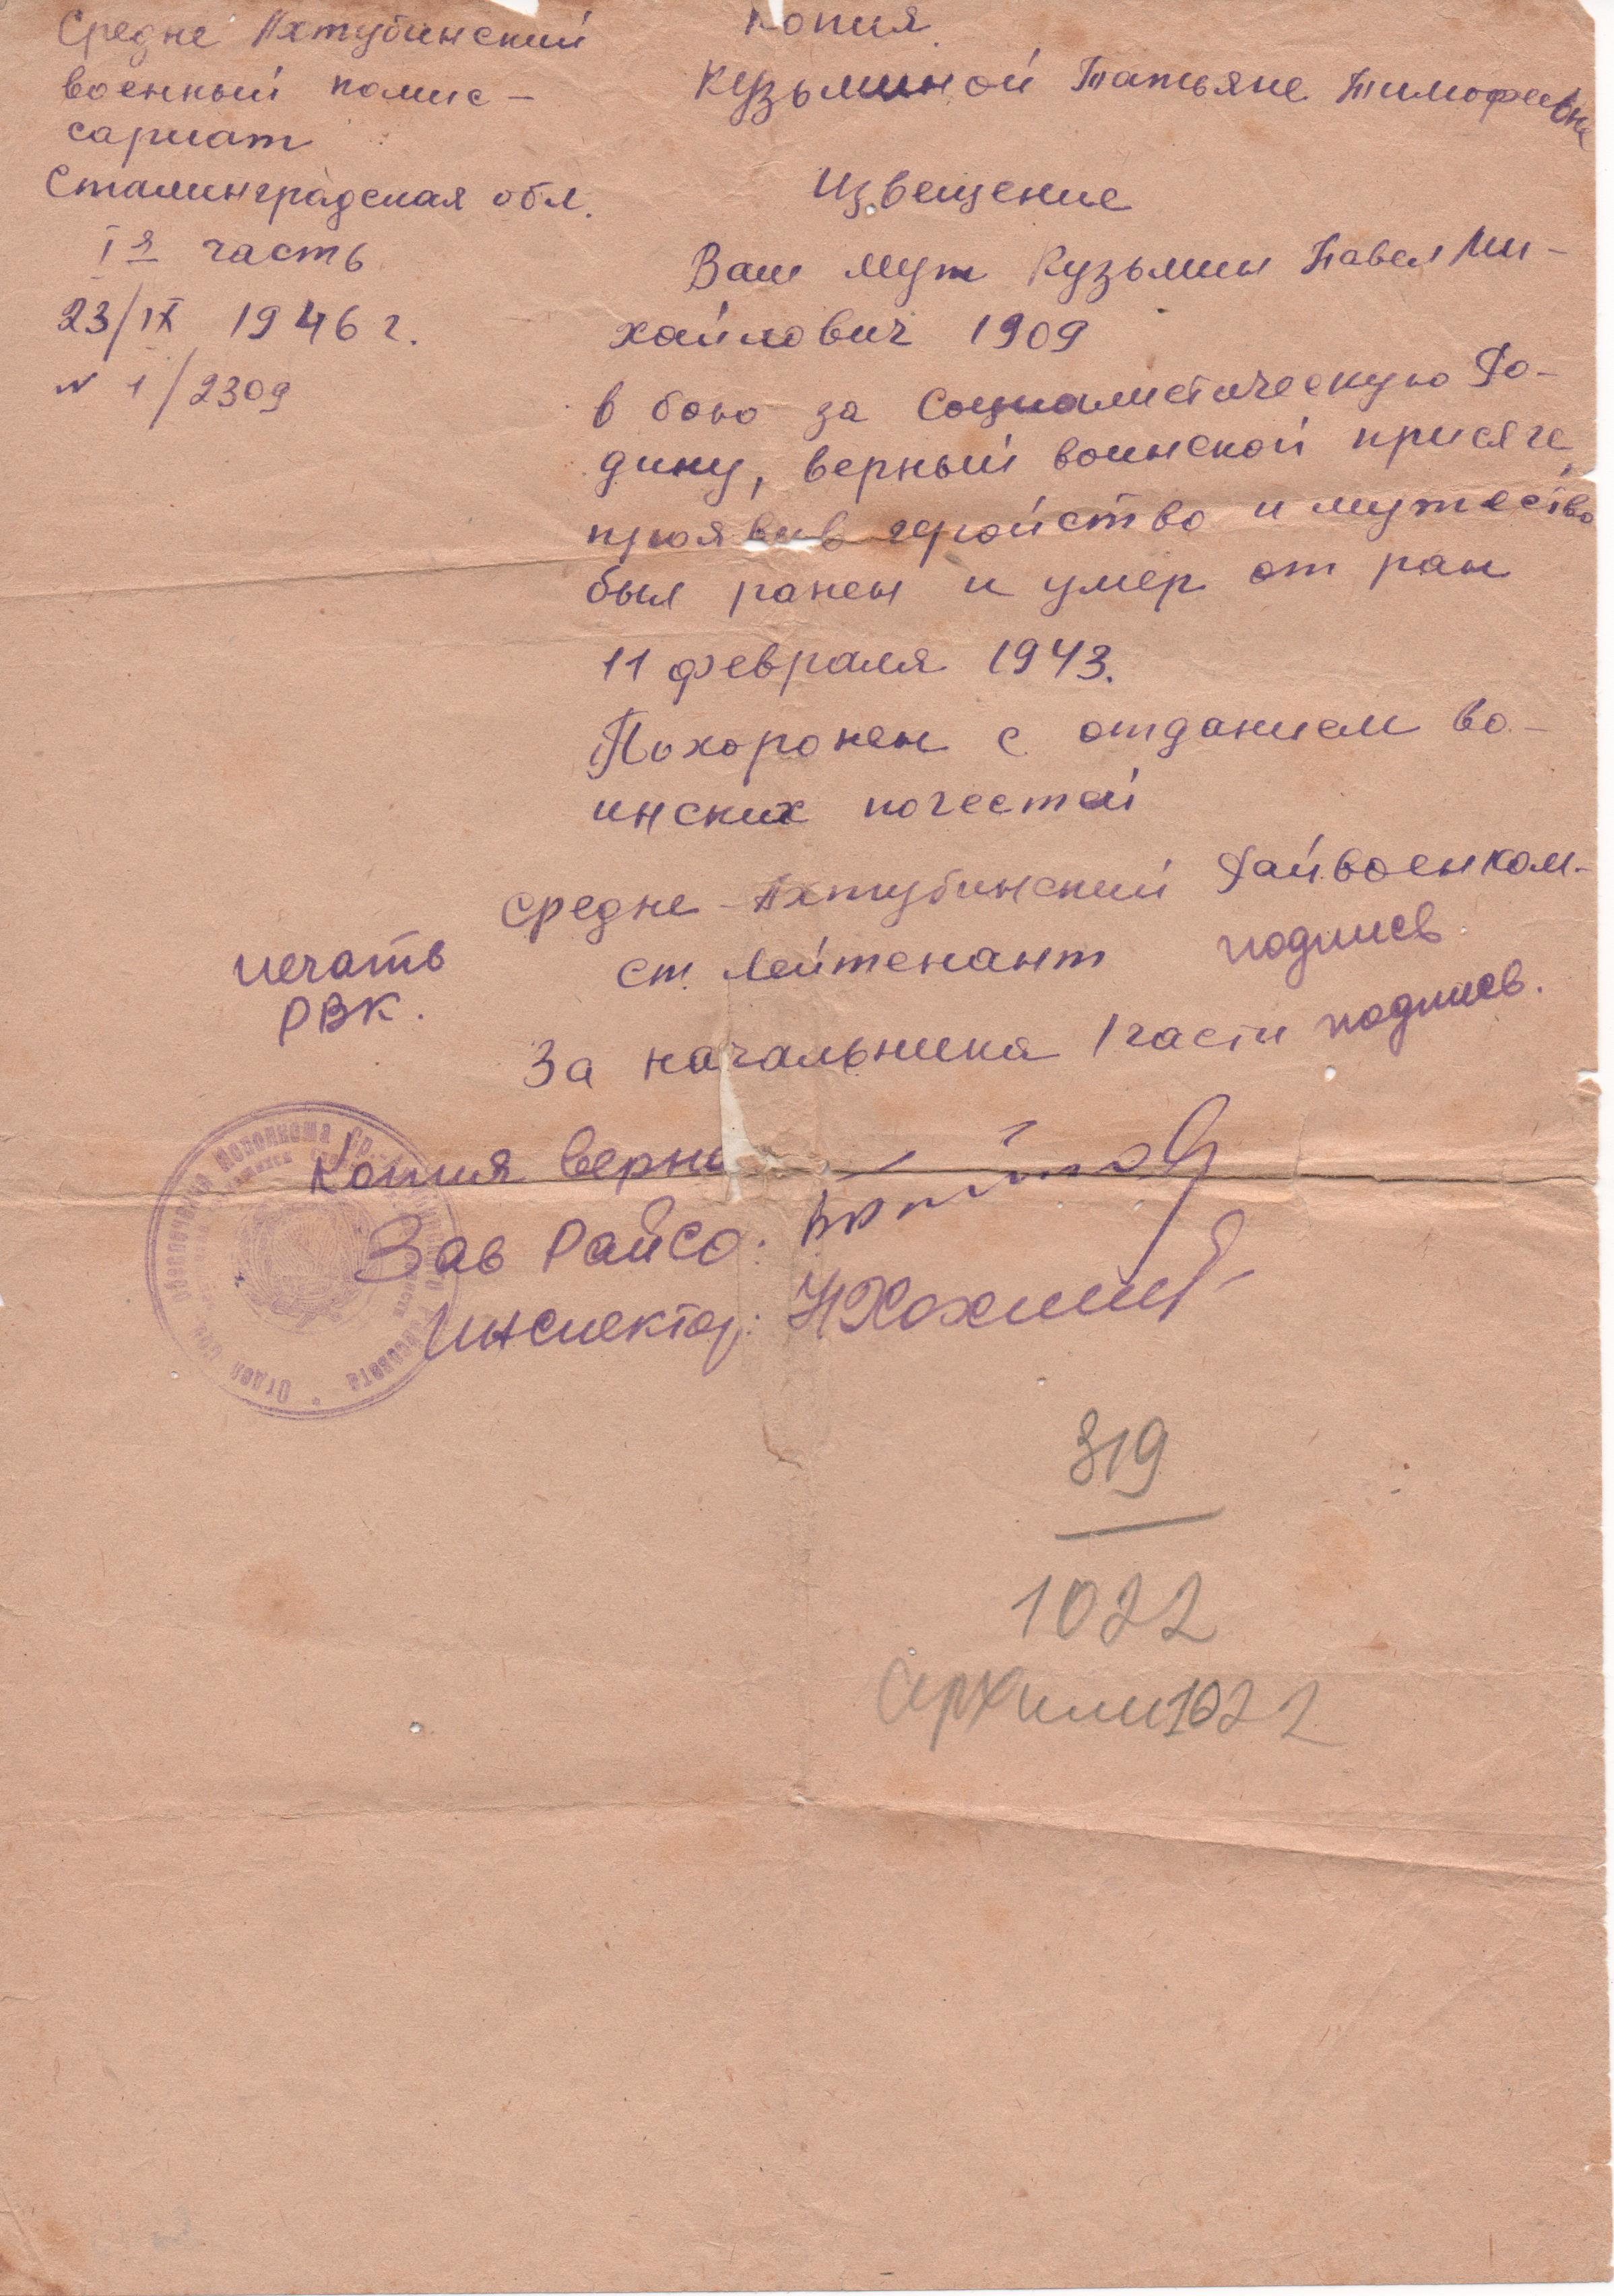 Средне Ахтубинский
военный комис-
сариат
Сталинградская обл.
Iя часть
23/IX 1946 г.
N 1/2309
Копия
Кузьминой Татьяне Тимофеевне
Извещение
Ваш муж Кузьмин Павел Ми-
хайлович 1909
в бою за Социалистическую Ро-
дину, верный воинской присяге,
проявив геройство и мужество
был ранен и умер от ран
11 февраля 1943.
Похоронен с отданием во-
инских почестей
Средне-Ахтубинский Райвоенком-
ст. Лейтенант подпись.
печать
РВК.
За начальника 1 части подпись.
Копия верна
Зав РайСО.
инспектор:
319
1022
1022